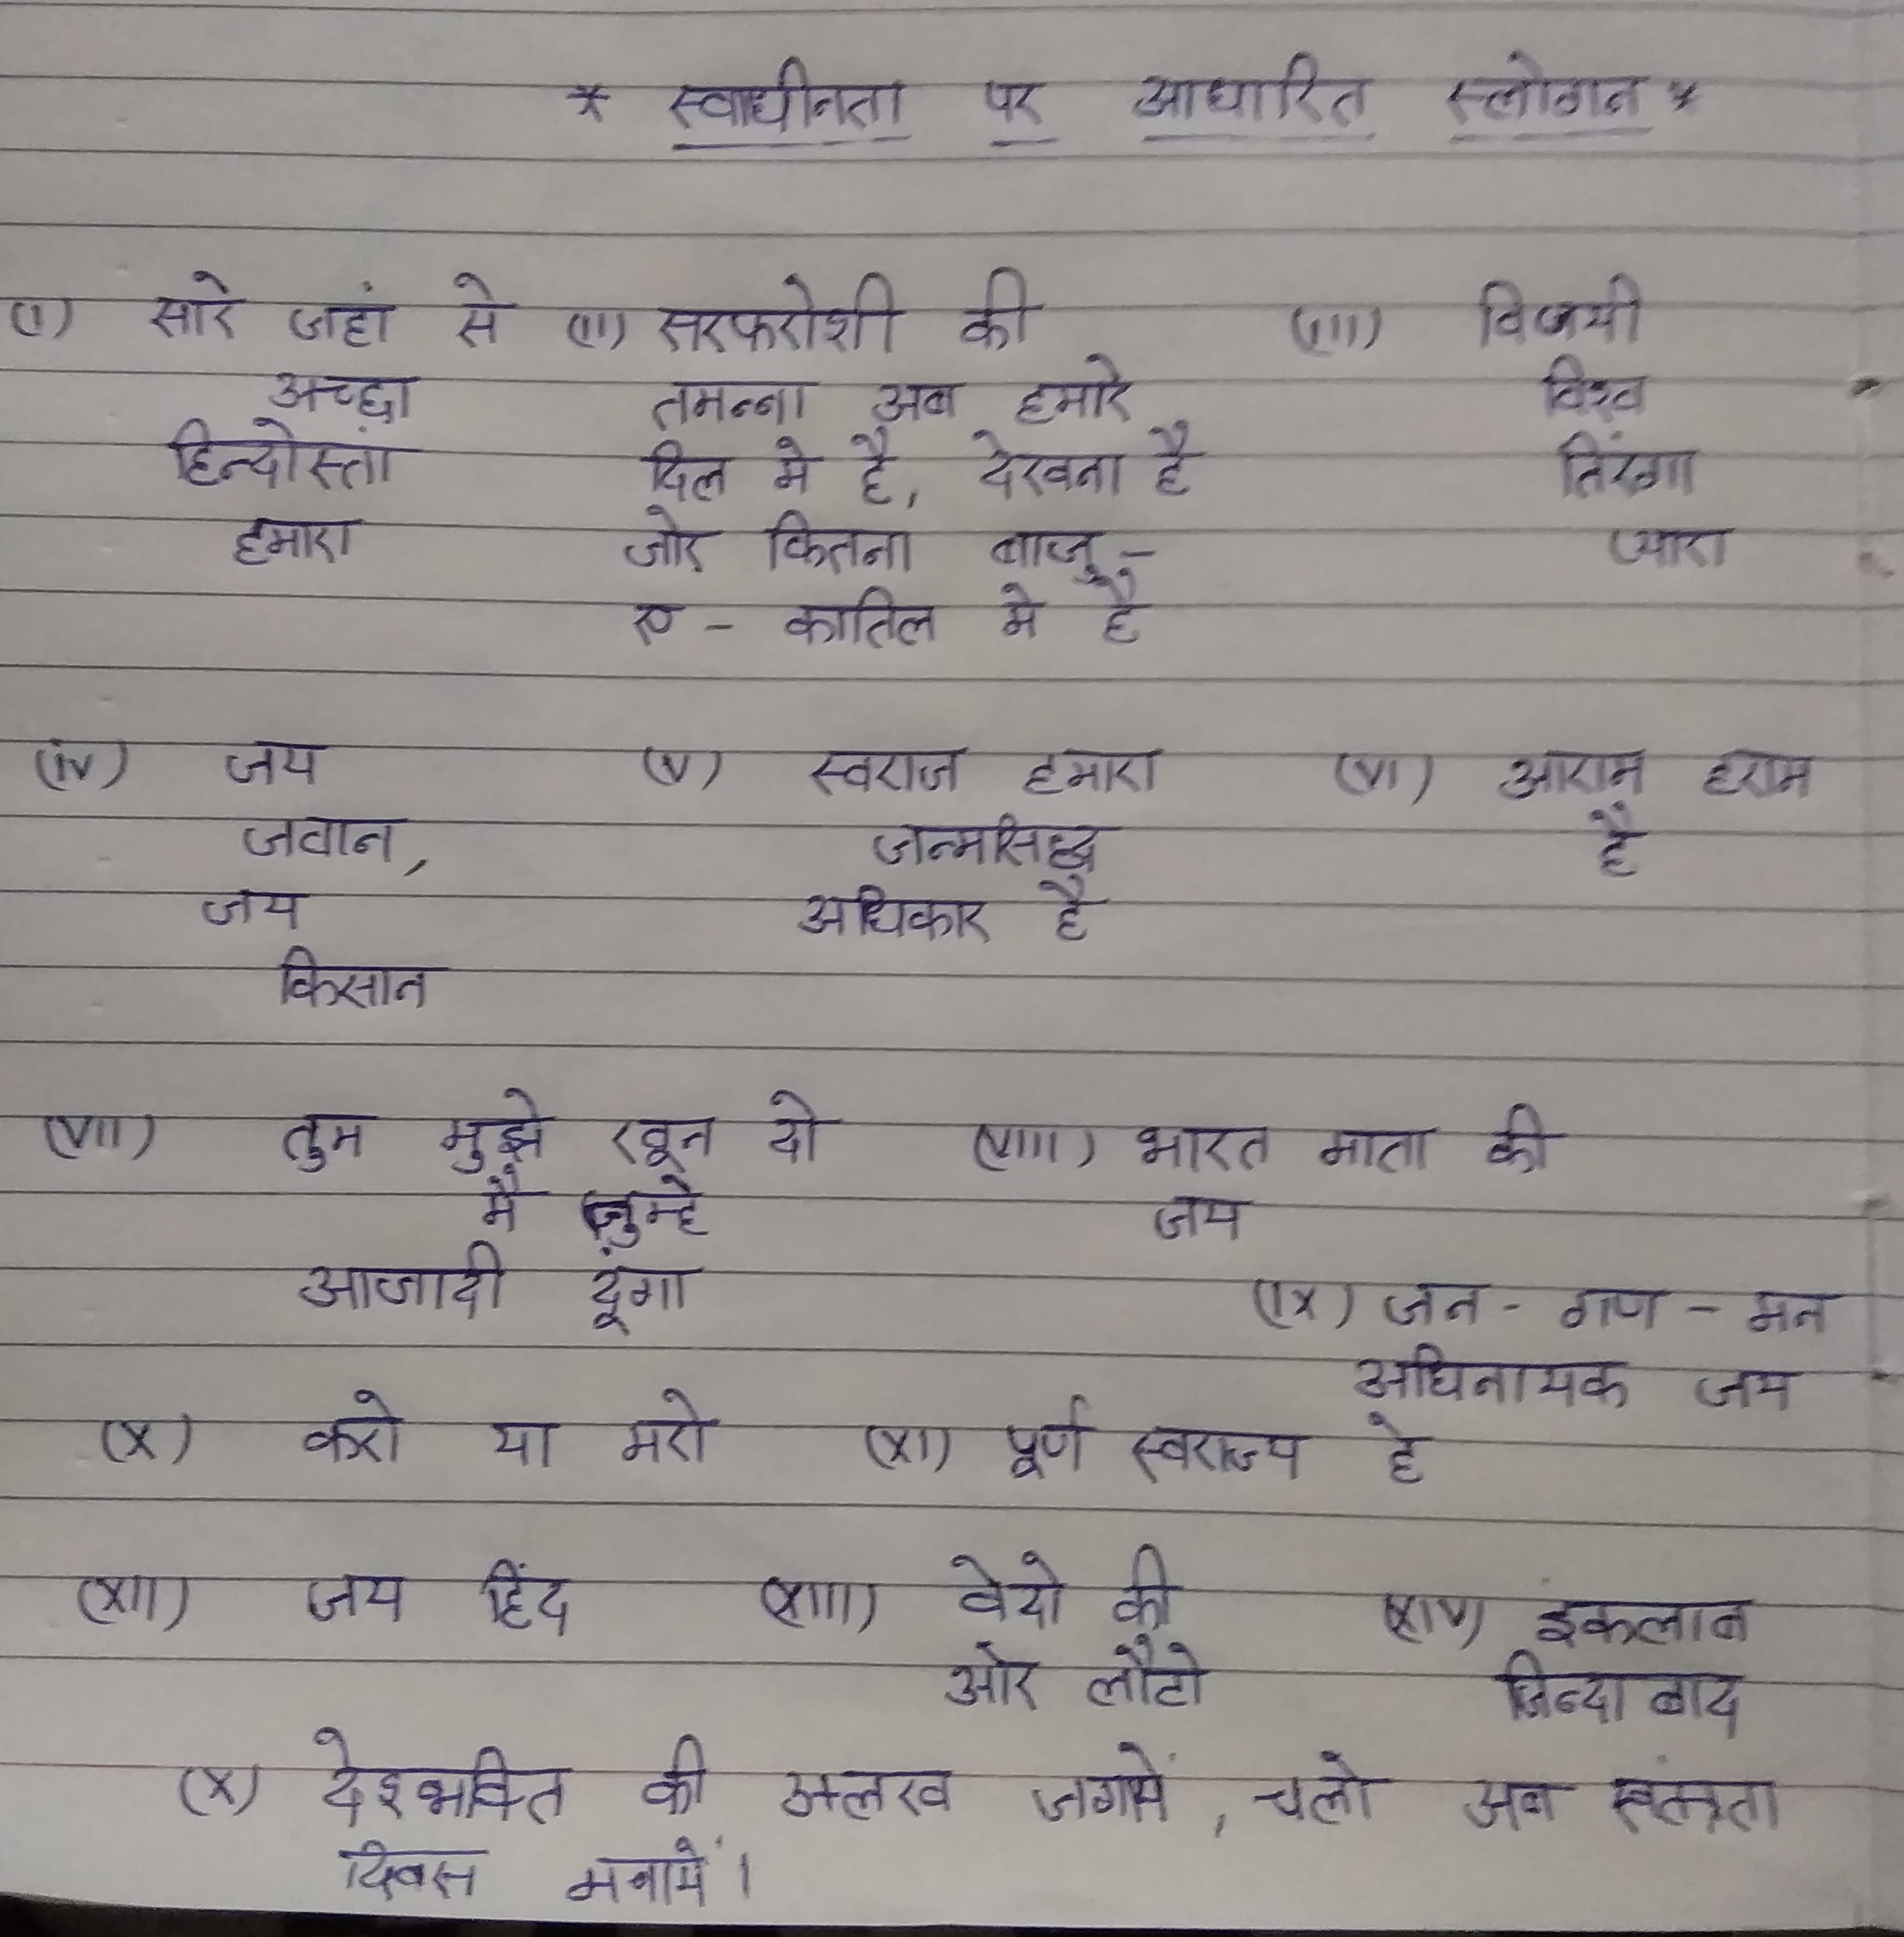 * स्वाधीनता पर आधारित स्लोगन *
(I) सारे जहां से
अच्छा
हिन्दोस्तां
हमारा
(II) सरफरोशी की
तमन्ना अब हमारे
दिल मे है, देखना है
जोर कितना बाजु-
ए - कातिल मे है
(III) विजयी
विश्व
तिंरगा
प्यारा
(iv) जय
जवान,
जय
किसान
(V) स्वराज हमारा
जन्मसिद्ध
अधिकार है
(VI) आराम हराम
है
(VII) तुम मुझे खून दो
मै तुम्हे
आजादी दूंगा
(VIII) भारत माता की
जय
(IX) जन - गण - मन
अधिनायक जय
हे
(X) करो या मरो
(XI) पूर्ण स्वराज्य
(XII) जय हिंद
(XIII) वेदो की
ओर लौटो
(XIV) इंकलाब
जिन्दा बाद
(X) देशभक्ति की अलख जगायें, चलो अब स्वंतत्रता
दिवस मनायें।